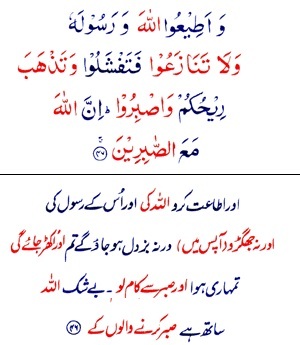 وَ اَطِيْعُوا اللّٰهَ وَ رَسُوْلَهٗ
وَلَا تَنَازَعُوْا فَتَفْشَلُوْا وَتَذْهَبَ
رِيْحُكُمْ وَاصْبِرُوْا ؕ اِنَّ اللّٰهَ
مَعَ الصّٰبِرِيْنَ ۚ﴿۴۶﴾
اور اطاعت کرو اللہ کی اور اُس کے رسول کی
اور نہ جھگڑو (آپس میں) ورنہ بزدل ہوجاؤ گے تم اور اُکھڑ جائے گی
تمہاری ہوا اور صبر سے کام لو ۔ بے شک اللہ
ساتھ ہے صبر کرنے والوں کے ﴿۴۶﴾